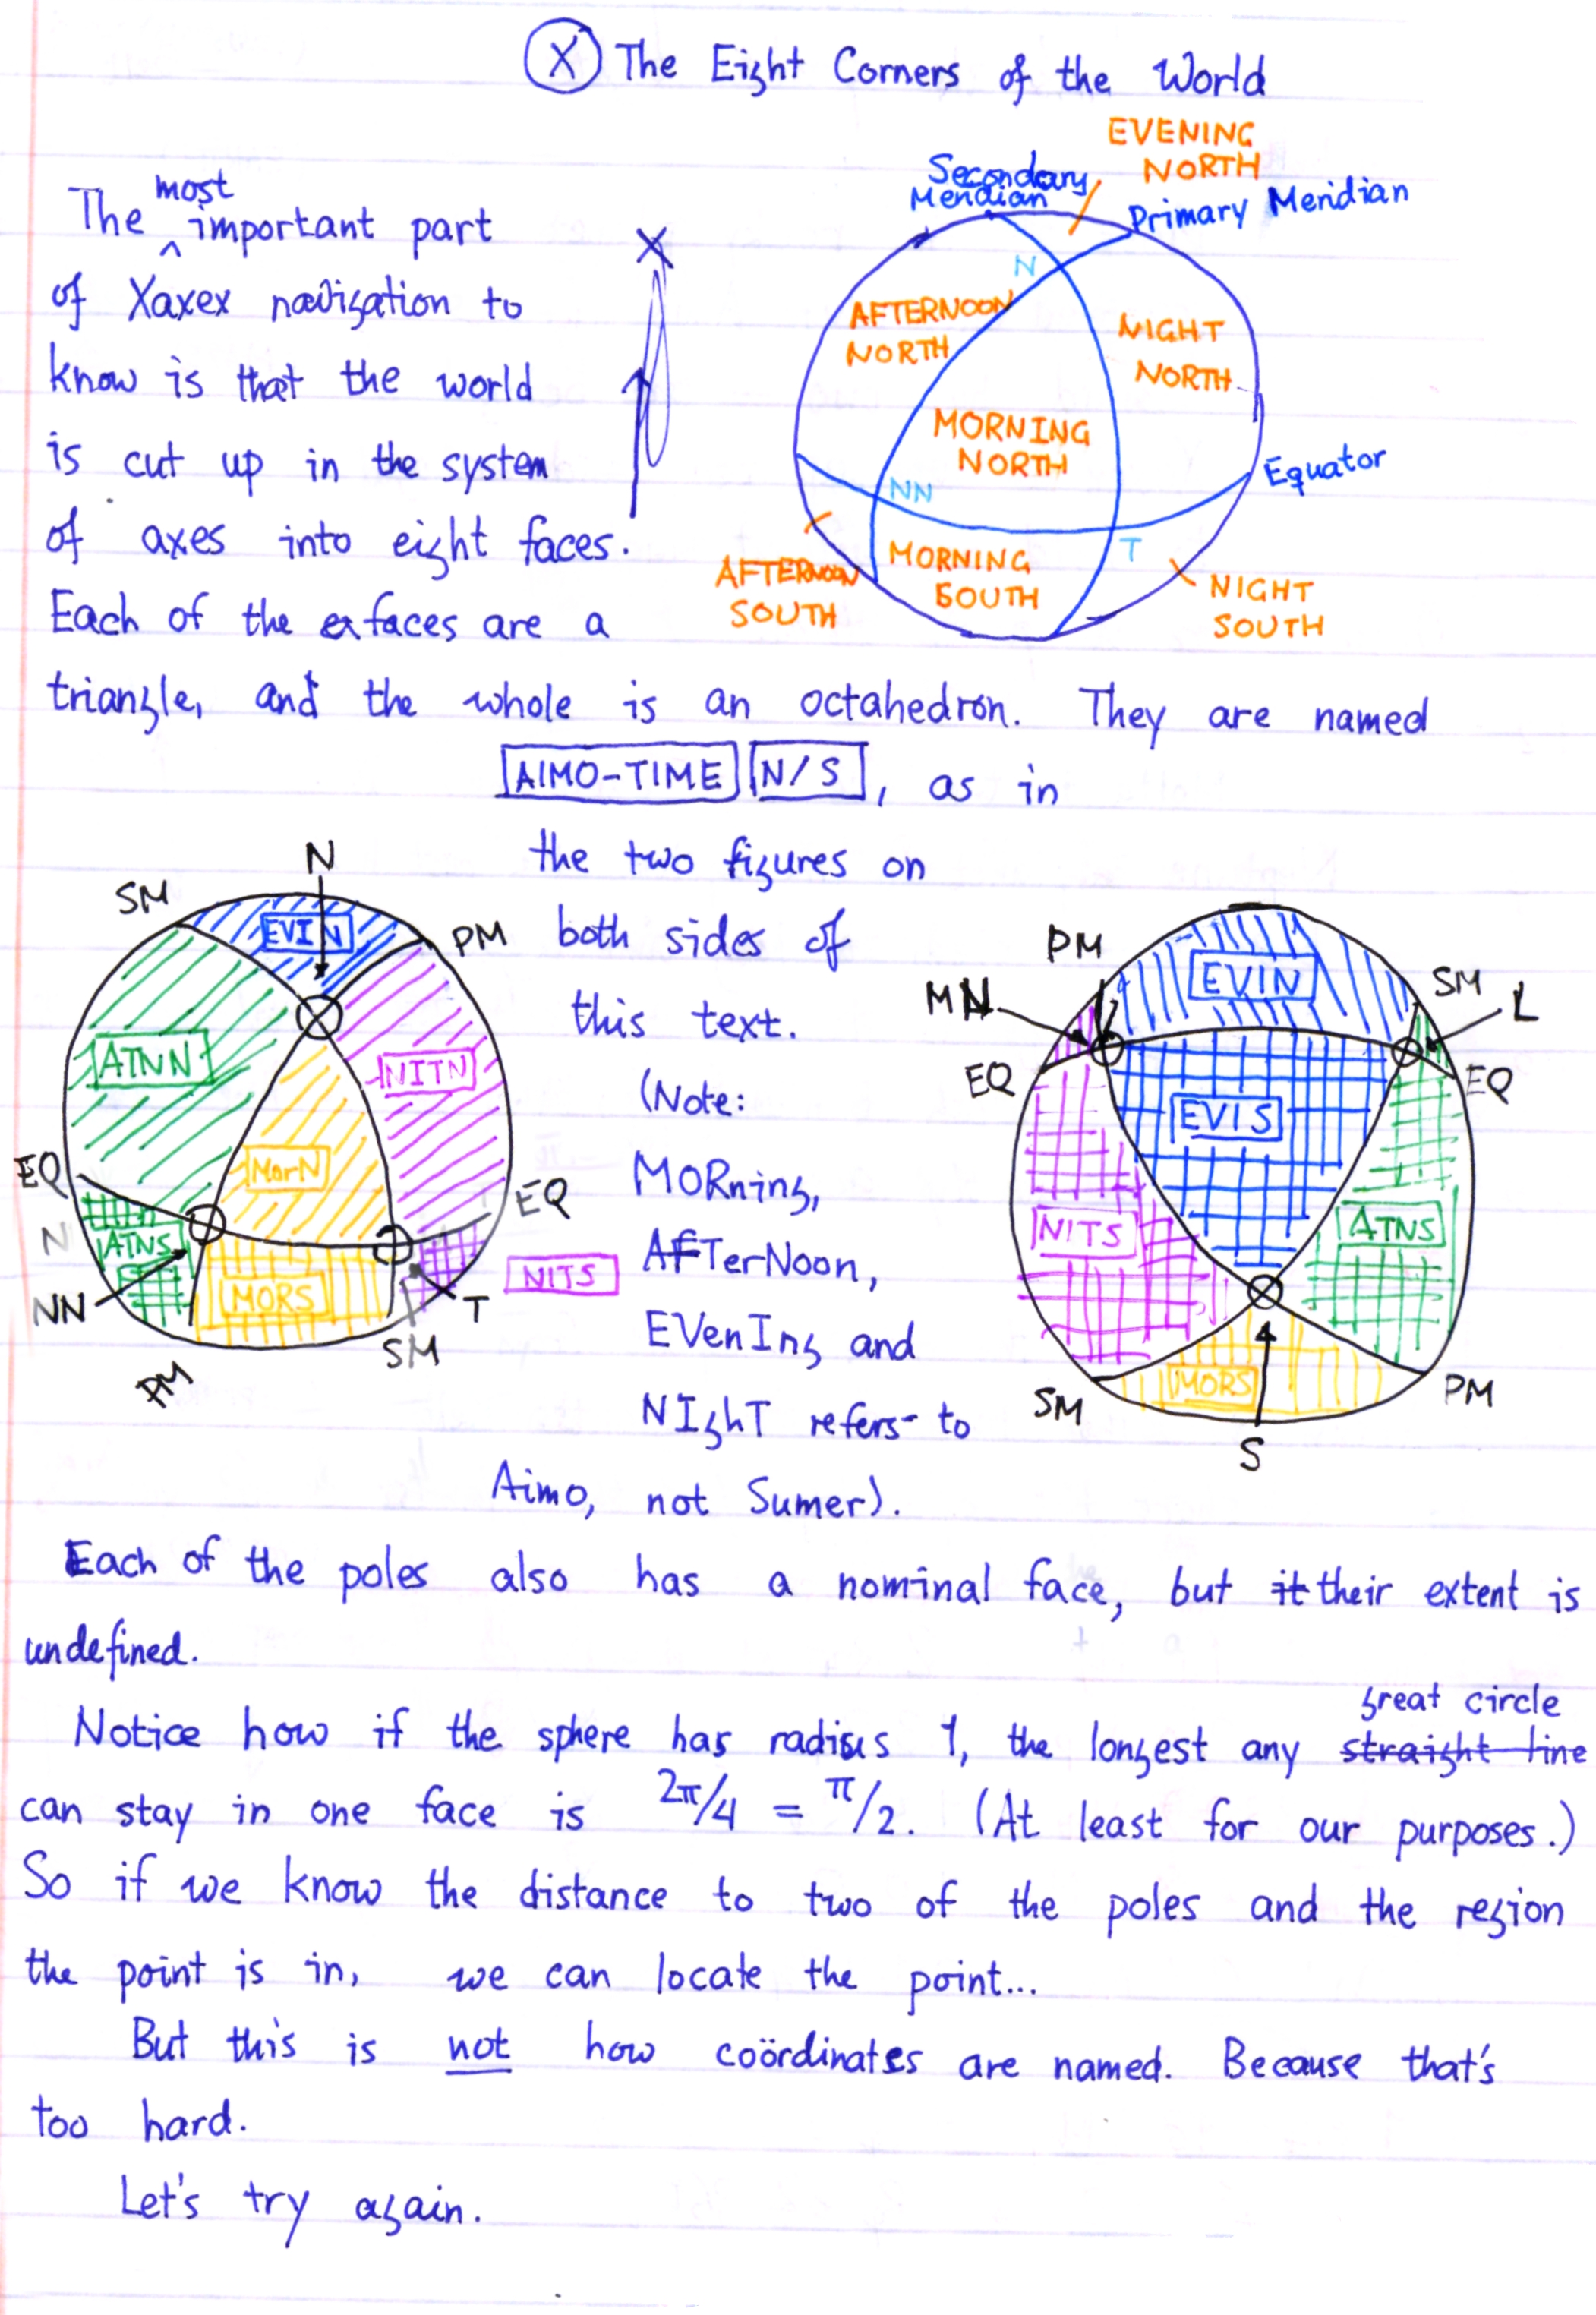 X The Eight Corners of the World
The most important part
of Xaxex navigation to
know is that the world
is cut up in the system
of axes into eight faces.
Each of the faces are a
triangle, and the whole is an octahedron. They are named
AIMO-TIME N/S, as in
the two figures on
both sides of
this text.
(Note:
MORning,
AFTerNoon,
EVenIng and
NIghT refers to
Aimo, not Sumer).
X
EVENING
NORTH
Secondary
Meridian
Primary Meridian
N
AFTERNOON
NORTH
NIGHT
NORTH
MORNING
NORTH
Equator
NN
T
MORNING
SOUTH
AFTERNOON
SOUTH
NIGHT
SOUTH
N
SM
EVIN
PM
ATNN
NITN
MorN
EQ
EQ
N
ATNS
NITS
MORS
NN
T
SM
PM
PM
EVIN
SM
MN
L
EQ
EQ
EVIS
NITS
ATNS
MORS
SM
PM
S
Each of the poles also has a nominal face, but it their extent is
undefined.
Notice how if the sphere has radius 1, the longest any straight line great circle
can stay in one face is 2π/4 = π/2. (At least for our purposes.)
So if we know the distance to two of the poles and the region
the point is in, we can locate the point...
But this is not how coördinates are named. Because that's
too hard.
Let's try again.